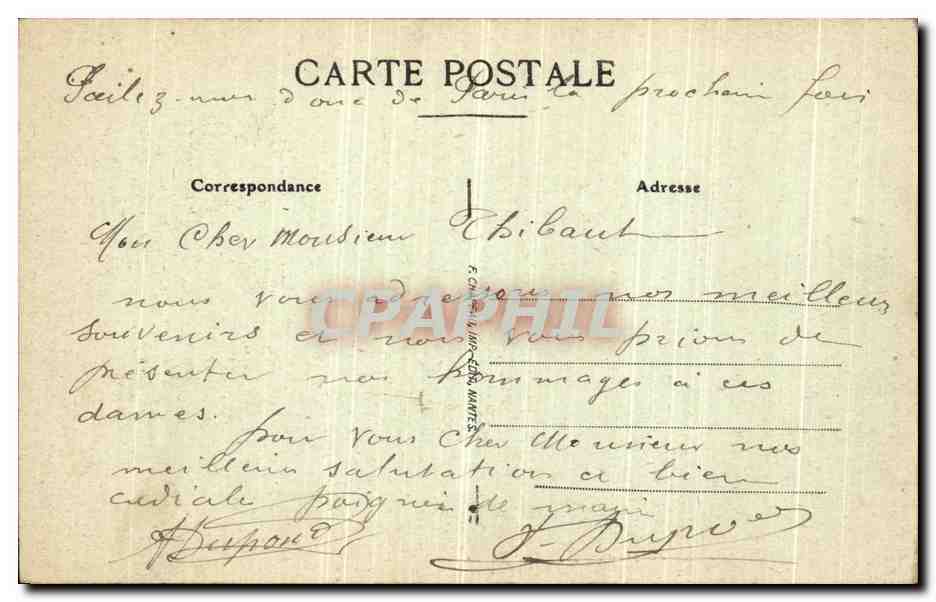 CARTE POSTALE
donc de Paris la prochain fois
Correspondance
Adresse
Mon Cher Monsieur Thibaut
nous vous adressons nos meilleurs
souvenirs et nous vous prions de
présenter nos hommages à ces
dames.
pour vous cher Monsieur nos
meilleurs salutations et bien
cadiale poignée de main
Dupond
CPAPHIL
IMP.-EDIT, NANTES